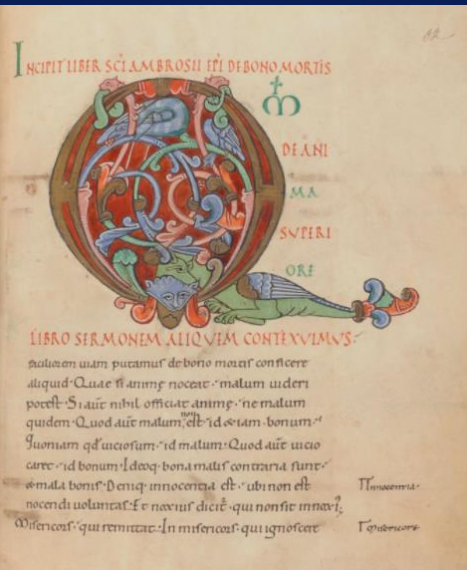 82
INCIPIT LIBER SCI AMBROSII EPI DE BONO MORTIS
Q M
DE ANI
MA
SUPERI
ORE
LIBRO SERMONEM ALIQUEM CONTEXUIMUS
faciliorem uiam putamus de bono mortis conficere
aliquid · Quae si animę noceat · malum uideri
potest · Si aut nihil officiat animę · ne malum
non
quidem · Quod aut malum est · id &iam · bonum ·
Quoniam qd uiciosum · id malum · Quod aut uicio
caret · id bonum · Ideoq · bona malis contraria sunt ·
& mala bonis · Deniq innocentia est · ubi non est
nocendi uoluntas · Et noxius dicit · qui non sit innoxi;
Misericors · qui remittat · In misericors · qui ignoscere
innocentia ·
misericors